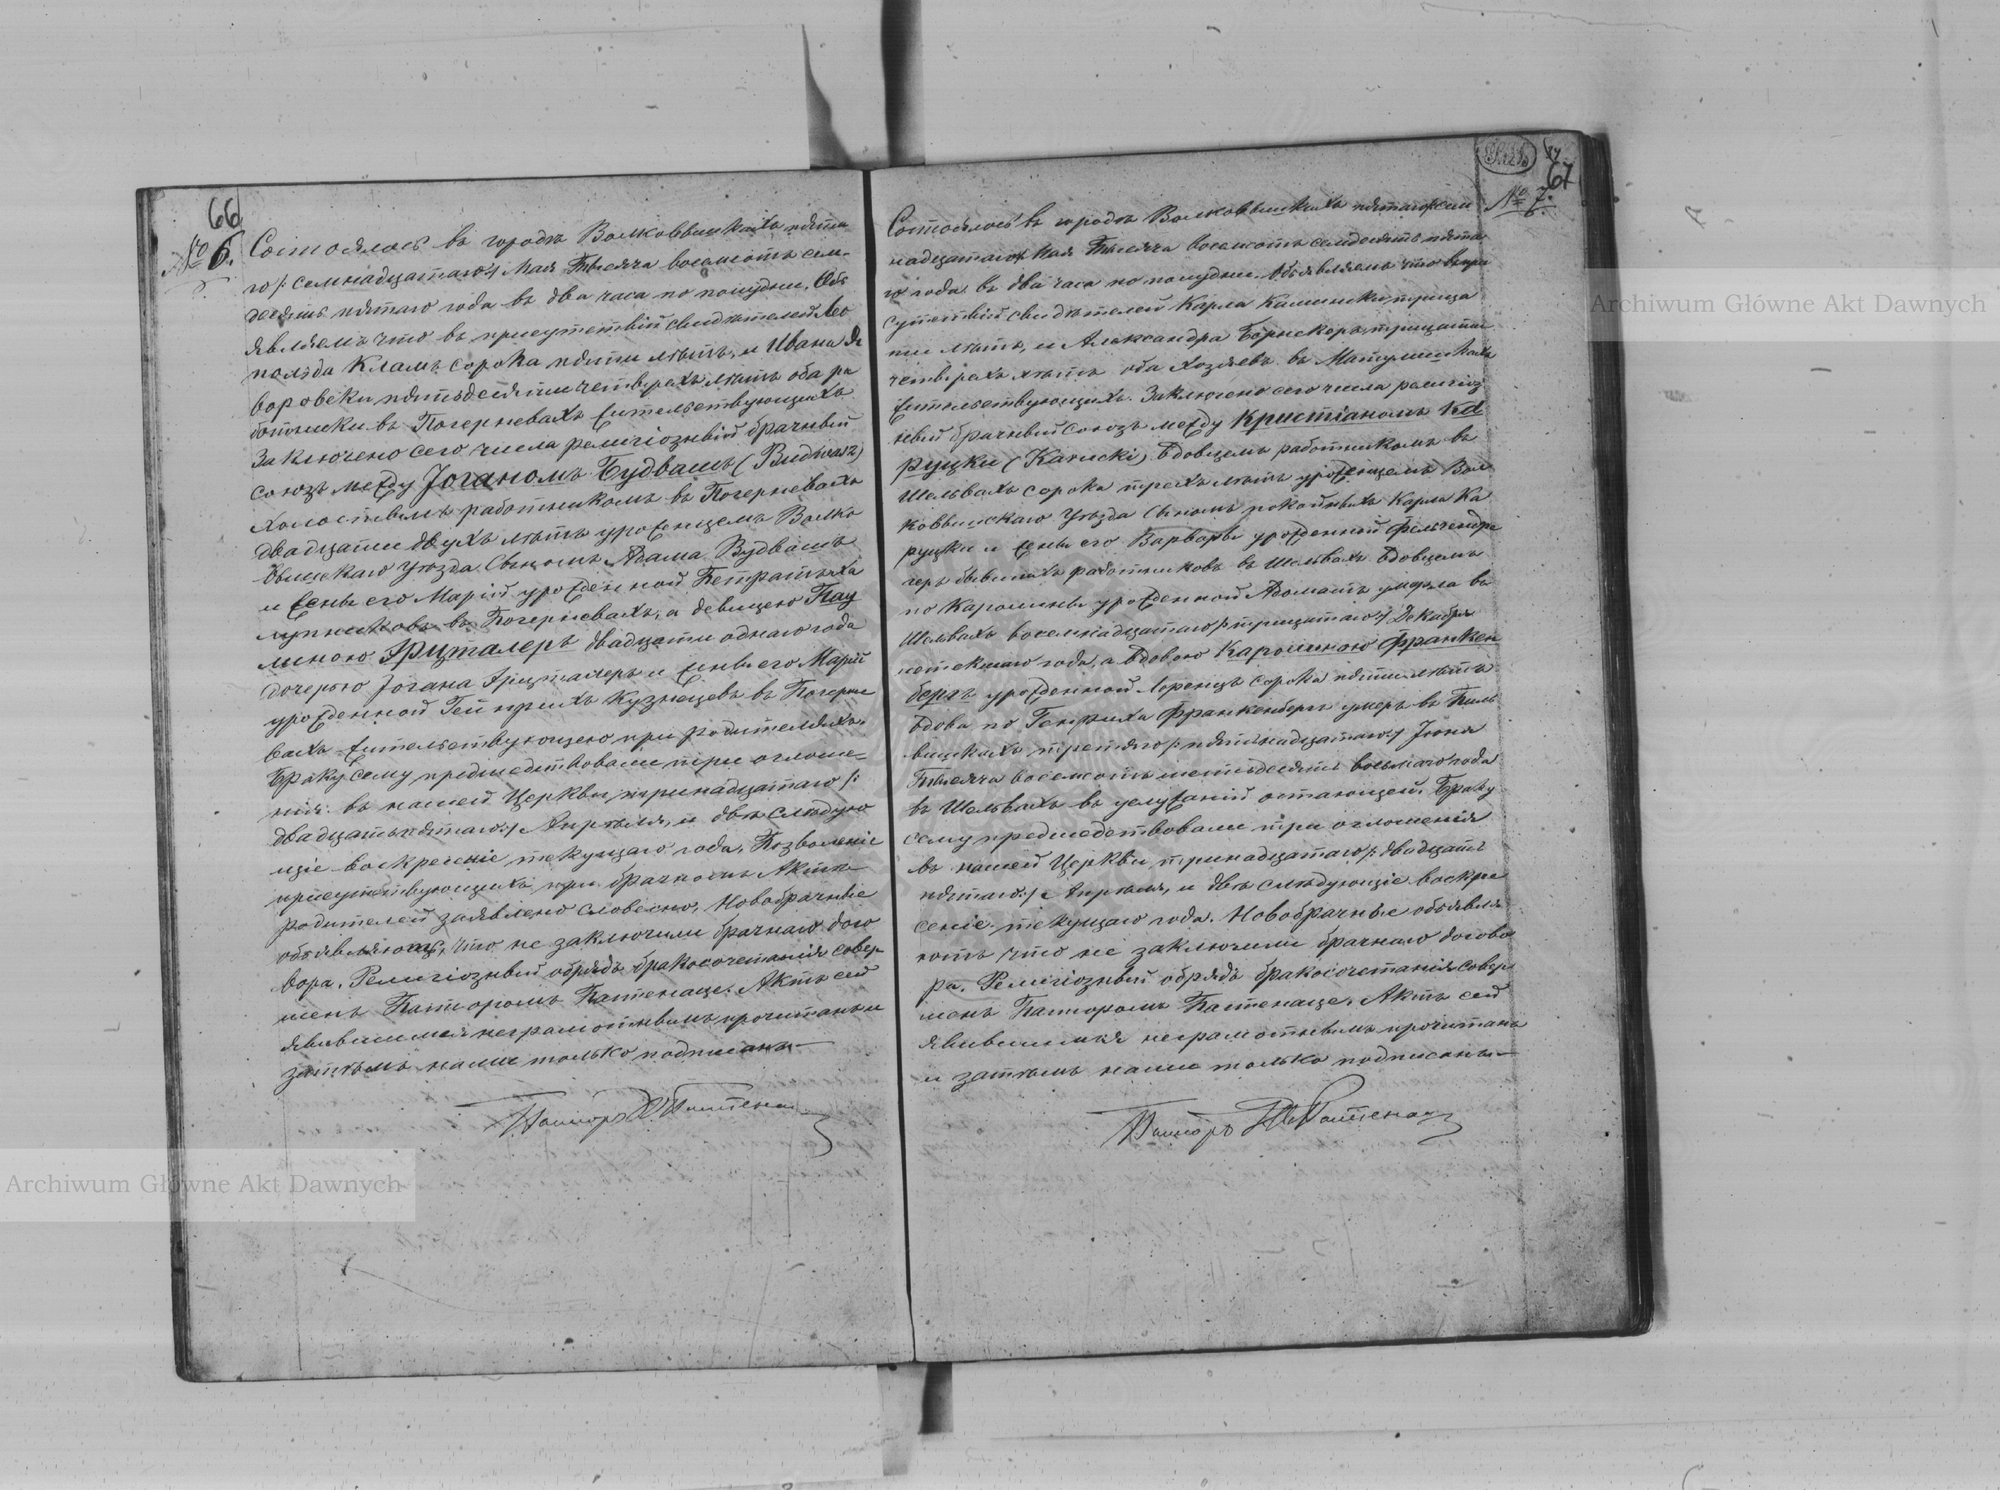 66
№ 6.
Состоялось въ городѣ Волковышкахъ пята
го /: семнадцатаго :/ Мая Тысяча восемьсотъ сем-
десятъ пятаго года въ два часа по полудни. Объ
являемъ что въ присутствій свидѣтелей Лео
польда Кламъ сорока пяти лѣтъ, и Ивана
воровски пятьдесяти четырехъ лѣтъ оба ра
ботники въ Погерневахъ жительствующихъ
Заключено сего числа религіозный брачный
союзъ между Іоганомъ Будвашъ (Budwasz)
холостымъ работникомъ въ Погерневахъ
двадцати двухъ лѣтъ урожденцемъ Волко
вышскаго уѣзда Сыномъ Адама Будвашъ
и жены его Маріи урожденной Петратъ
лупниковъ въ Погерневахъ, а девицею Пау
линою Грицталеръ двадцати одного года
дочерью Іогана Грицталеръ и жены его Маріи
урожденной Гейнрихъ Кузнецевъ въ Погерне
вахъ жительствующею при родителяхъ.
Браку сему предшедствовали три оглоше-
нія въ нашей Церкви, тринадцатаго /:
двадцать пятаго :/ Апрѣля, и двѣ слѣдую
щіе воскресеніе текущаго года. Позволеніе
присутствующихъ при брачномъ Актѣ
родителей заявлено словесно. Новобрачные
объявляютъ, что не заключили брачнаго дого
вора. Религіозный обрядъ бракосочетанія совер
шенъ Пасторомъ Пастенаце. Актъ сей
явившимся неграмотнымъ прочитанъ и
затѣмъ нами только подписанъ
Пасторъ Пастенаци
67
№ 7.
Состоялось въ городѣ Волковышкахъ пятаго /: сем
надцатаго :/ Мая Тысяча восемьсотъ семдесятъ пята
го года въ два часа по полудни. Объявляемъ что въ при
сутствій свидѣтелей Карла Камински трица
ти лѣтъ, и Александра Борнскеръ трицати
четырехъ лѣтъ оба Хозяевъ въ Матулишкахъ
жительствующихъ. Заключено сего числа религіоз
ный брачный союзъ между Кристіаномъ Ка
руцки (Karucki) Вдовцемъ работникомъ въ
Шельвахъ сорока трехъ лѣтъ урожденцемъ Вол
ковышскаго Уѣзда Сыномъ покойныхъ Карла Ка
руцки и жены его Варвары урожденной
геръ бывшихъ работниковъ въ Шельвахъ Вдовцемъ
по Каролины урожденной Адоматъ умерла въ
Шельвахъ восемнадцатаго /: трицатаго :/ Декабря
истекшаго года, а вдовою Каролиною Франкен
бергъ урожденной Лоренцъ сорока пяти лѣтъ
вдова по Генриха Франкенбергъ умеръ въ Пиль
вишкахъ третяго /: пятьнадцатаго :/ Іюня
Тысяча восемсотъ шестьдесятъ восьмаго года
въ Шельвахъ въ услуженій остающей. Браку
сему предшедствовали три оглошенія
въ нашей Церкви, тринадцатаго /: двадцать
пятаго :/ Апрѣля, и двѣ слѣдующіе воскре
сеніе текущаго года. Новобрачные объявля
ютъ что не заключили брачнаго догово
ра. Религіозный обрядъ бракосочетанія совер
шенъ Пасторомъ Пастенаце. Актъ сей
явившимся неграмотнымъ прочитанъ
и затѣмъ нами только подписанъ
Пасторъ Пастенаци
Archiwum Główne Akt Dawnych
Archiwum Główne Akt Dawnych